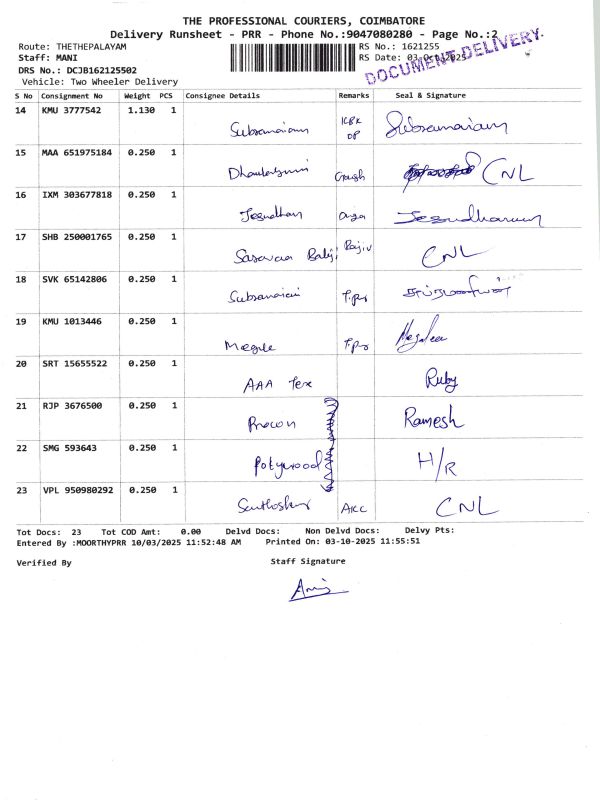 THE PROFESSIONAL COURIERS, COIMBATORE
Delivery Runsheet - PRR - Phone No.:9047080280 - Page No.:2
Route: THETHEPALAYAM RS No.: 1621255
Staff: MANI RS Date: 03-Oct-2025
DOCUMENT DELIVERY.
DRS No.: DCJB162125502
Vehicle: Two Wheeler Delivery
S No Consignment No Weight PCS Consignee Details Remarks Seal & Signature
14 KMU 3777542 1.130 1 Subramaniam Subramaniam
15 MAA 651975184 0.250 1 CNL
16 IXM 303677818 0.250 1
17 SHB 250001765 0.250 1 Rajiv CNL
18 SVK 65142806 0.250 1
19 KMU 1013446 0.250 1
20 SRT 15655522 0.250 1 AAA Tex Ruby
21 RJP 3676500 0.250 1 Procon Ramesh
22 SMG 593643 0.250 1 Polywood H/R
23 VPL 950980292 0.250 1 CNL
Tot Docs: 23 Tot COD Amt: 0.00 Delvd Docs: Non Delvd Docs: Delvy Pts:
Entered By :MOORTHYPRR 10/03/2025 11:52:48 AM Printed On: 03-10-2025 11:55:51
Verified By Staff Signature